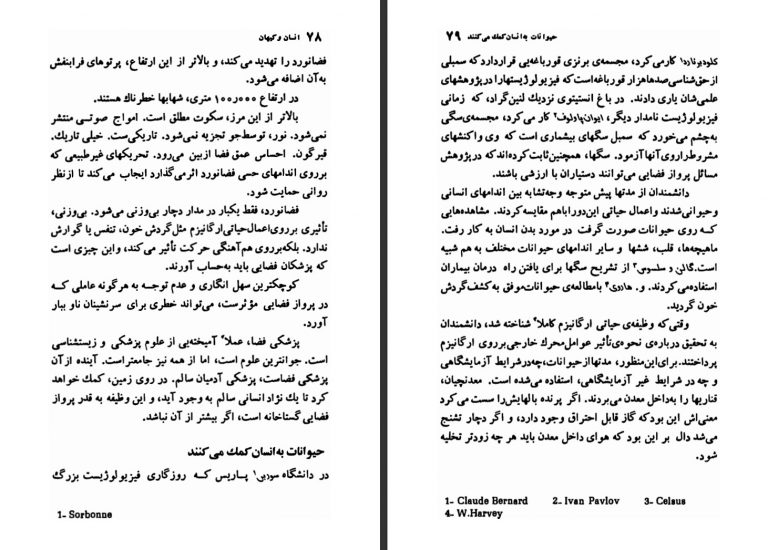 ۷۸ انسان و کیهان
فضانورد را تهدید می‌کند، و بالاتر از این ارتفاع، پرتوهای فرابنفش
به‌آن اضافه می‌شود.
در ارتفاع ۱۰۰٫۰۰۰ متری، شهابها خطرناك هستند.
بالاتر از این مرز، سکوت مطلق است. امواج صوتی منتشر
نمی‌شود. نور، توسط‌جو تجزیه نمی‌شود. تاریکی‌ست. خیلی تاریك.
قیرگون. احساس عمق فضا ازبین می‌رود. تحریکهای غیرطبیعی که
برروی اندامهای حسی فضانورد اثرمی‌گذارد ایجاب می‌کند تا ازنظر
روانی حمایت شود.
فضانورد، فقط یکبار در مدار دچار بی‌وزنی می‌شود. بی‌وزنی،
تأثیری برروی‌اعمال‌حیاتی‌ارگانیزم مثل‌گردش خون، تنفس یا گوارش
ندارد. بلکه‌برروی هم‌آهنگی حرکت تأثیر می‌کند، واین چیزی است
که پزشکان فضایی باید به‌حساب آورند.
کوچکترین سهل انگاری و عدم توجه به هرگونه عاملی کــه
در پرواز فضایی مؤثرست، می‌تواند خطری برای سرنشینان ناو ببار
آورد.
پزشکی فضا، عملاً آمیخته‌یی از علوم پزشکی و زیستشناسی
است. جوانترین علوم است، اما از همه نیز جامعتراست. آینده ازآن
پزشکی فضاست، پزشکی آدمیان سالم. در روی زمین، کمك خواهد
کرد تا یك نژاد انسانی سالم به وجود آید، و این وظیفه به قدر پرواز
فضایی گستاخانه است، اگر بیشتر از آن نباشد.
حیوانات به‌انسان‌کمك می‌کنند
در دانشگاه سوربن۱ پـاریس کــه روزگاری فیزیولوژیست بزرگ
1- Sorbonne
حیوانات به‌انسان‌کمك می‌کنند ۷۹
کلودبرنارد۱ کارمی‌کرد، مجسمه‌ی برنزی قورباغه‌یی قراردارد که سمبلی
ازحق‌شناسی‌صدهاهزار قورباغه‌است که فیزیولوژیستهارا درپژوهشهای
علمی‌شان یاری دادند. در باغ انستیتوی نزدیك لنین‌گراد، که زمانی
فیزیولوژیست نامدار دیگر، ایوان‌پاولوف۲ کار می‌کرد، مجسمه‌ی‌سگی
به‌چشم می‌خورد که سمبل سگهای بیشماری است که وی واکنشهای
مشروط‌راروی‌آنهاآزمود. سگها، همچنین‌ثابت‌کرده‌اندکه درپژوهش
مسائل پرواز فضایی می‌توانند دستیاران با ارزشی باشند.
دانشمندان از مدتها پیش متوجه وجه‌تشابه بین اندامهای انسانی
وحیوانی‌شدند واعمال حیاتی این‌دوراباهم مقایسه‌کردند. مشاهده‌هایی
کــه روی حیوانات صورت گرفت در مورد بدن انسان به کار رفت.
ماهیچه‌ها، قلب، ششها و سایر اندامهای حیوانات مختلف به هم شبیه
است.گالن و سلسوس۳ از تشریح سگها برای یافتن راه درمان بیماران
استفاده‌می‌کردند. و. هاروی۴ بامطالعه‌ی حیوانات‌موفق به‌کشف‌گردش
خون گردید.
وقتی‌که وظیفه‌ی حیاتی ارگانیزم کاملاً شناخته شد، دانشمندان
به تحقیق درباره‌ی نحوه‌ی‌تأثیر عوامل‌محرك خارجی‌برروی ارگانیزم
پرداختند. برای‌این‌منظور، مدتهاازحیوانات، چه‌درشرایط آزمایشگاهی
و چه در شرایط غیر آزمایشگاهی، استفاده می‌شده است. معدنچیان،
قناریها را به‌داخل معدن می‌بردند. اگر پرنده بالهایش‌را سست می‌کرد
معنی‌اش این بودکه گاز قابل احتراق وجود دارد، و اگر دچار تشنج
می‌شد دال بر این بود که هوای داخل معدن باید هر چه زودتر تخلیه
شود.
1- Claude Bernard 2- Ivan Pavlov 3- Celsus
4- W.Harvey